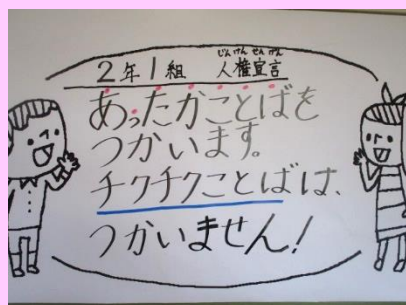 2年1組 人権宣言
じんけんせんげん
あったかことばを
つかいます。
チクチクことばは、
つかいません!